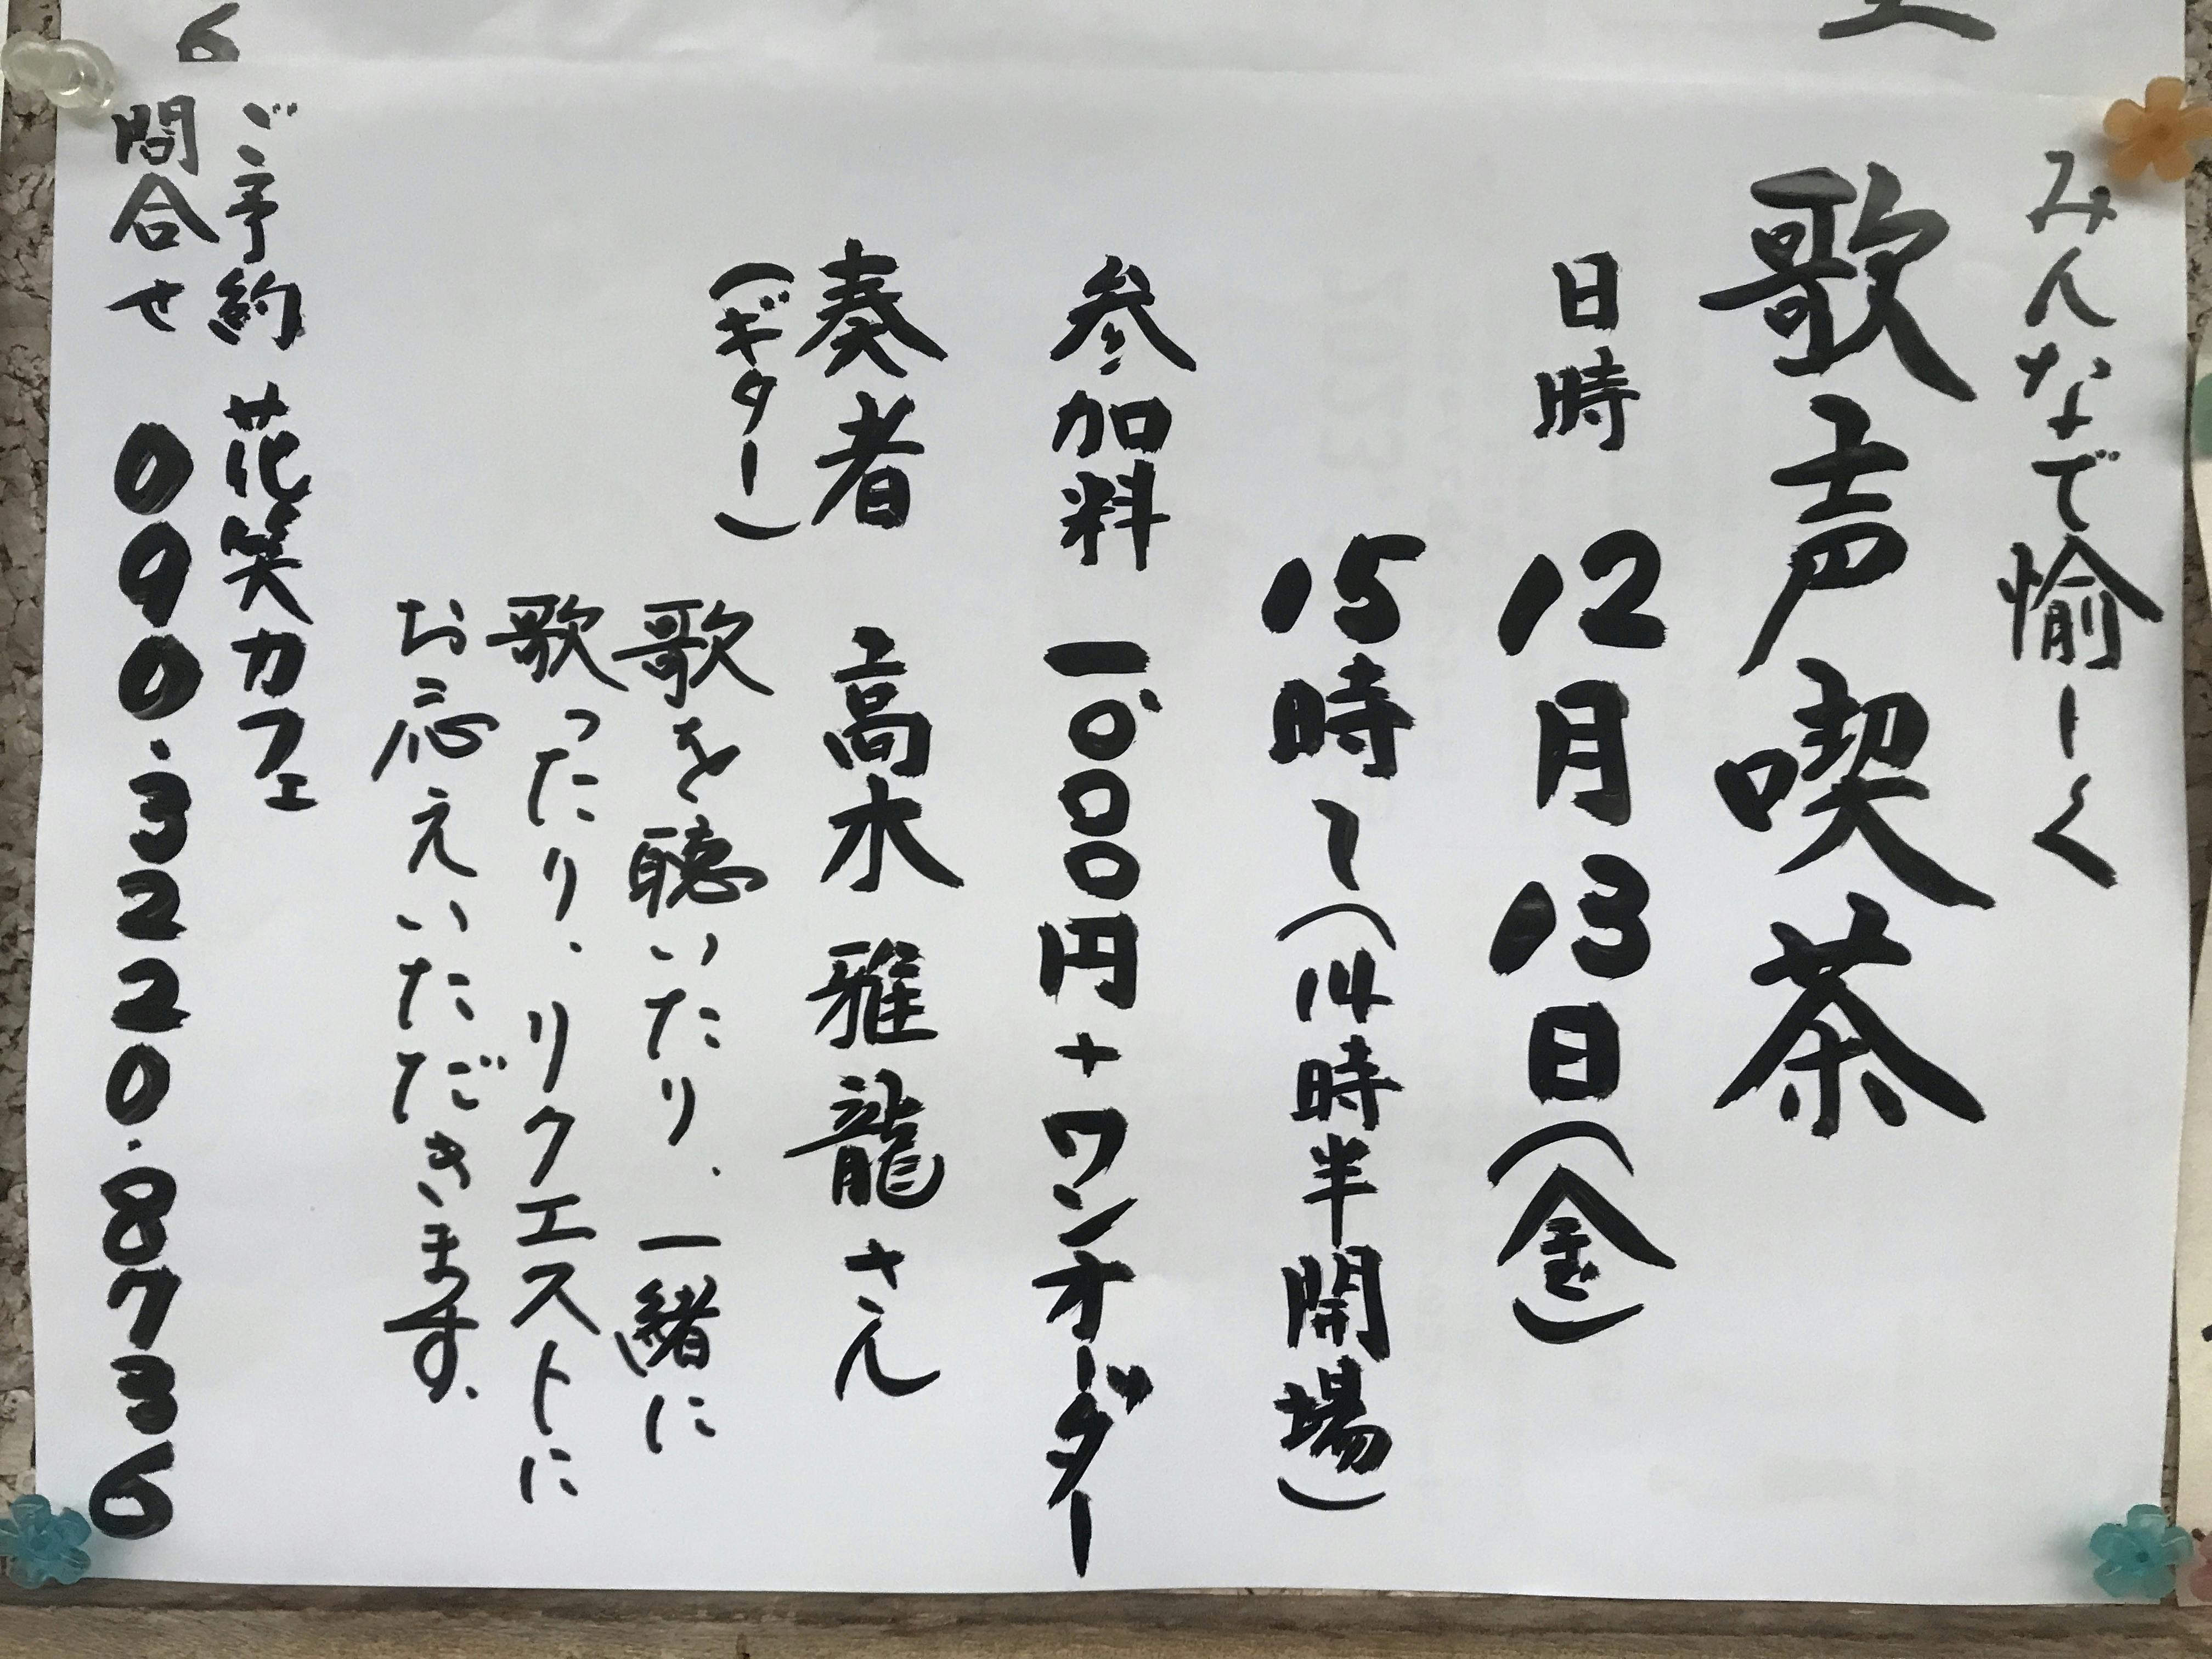 みんなで愉しく
歌声喫茶
日時 12月13日(金)
15時〜(14時半開場)
参加料 一、000円+ワンオーダー
奏者 高水雅龍さん
(ギター)
歌を聴いたり、一緒に
歌ったり、リクエストに
お応えいただきます。
ご予約 花笑カフェ
問合せ 090.3220.8736